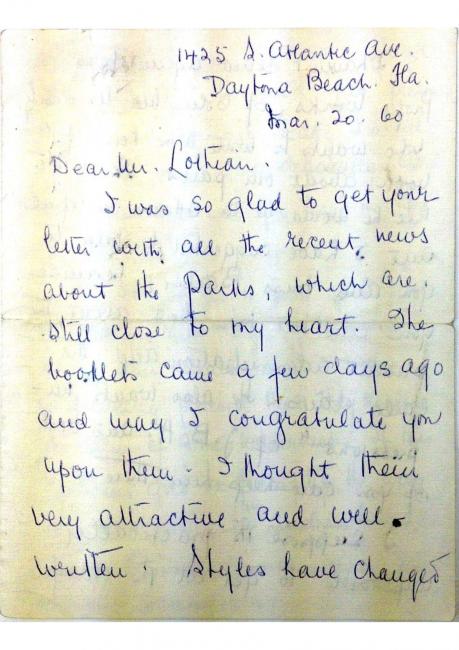 1425 S. Atlantic Ave.
Daytona Beach. Fla.
Mar. 20. 60
Dear Mr. Lothian.
I was so glad to get your
letter with all the recent news
about the Parks, which are.
still close to my heart. The
booklets came a few days ago
and may I congratulate you
upon them. I thought them
very attractive and well-
written. Styles have changed